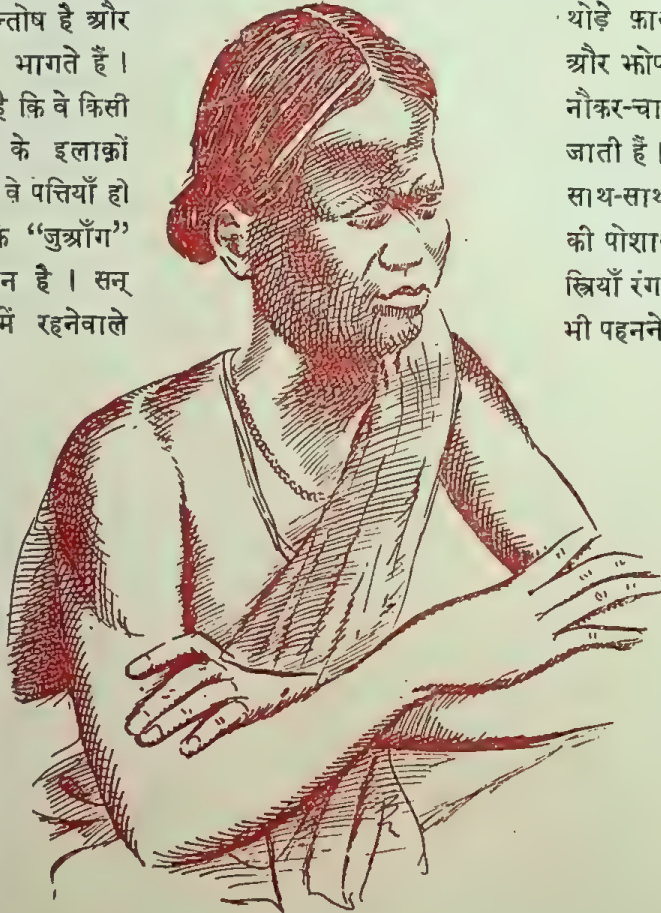 न्तोष है और
भागते हैं ।
है कि वे किसी
के इलाक़ों
वे पत्तियाँ हो
क “जुआँग”
न है । सन्
में रहनेवाले
थोड़े फ़ा
और झोप
नौकर-चा
जाती हैं ।
साथ-साथ
की पोशा
स्त्रियाँ रंग
भी पहनने